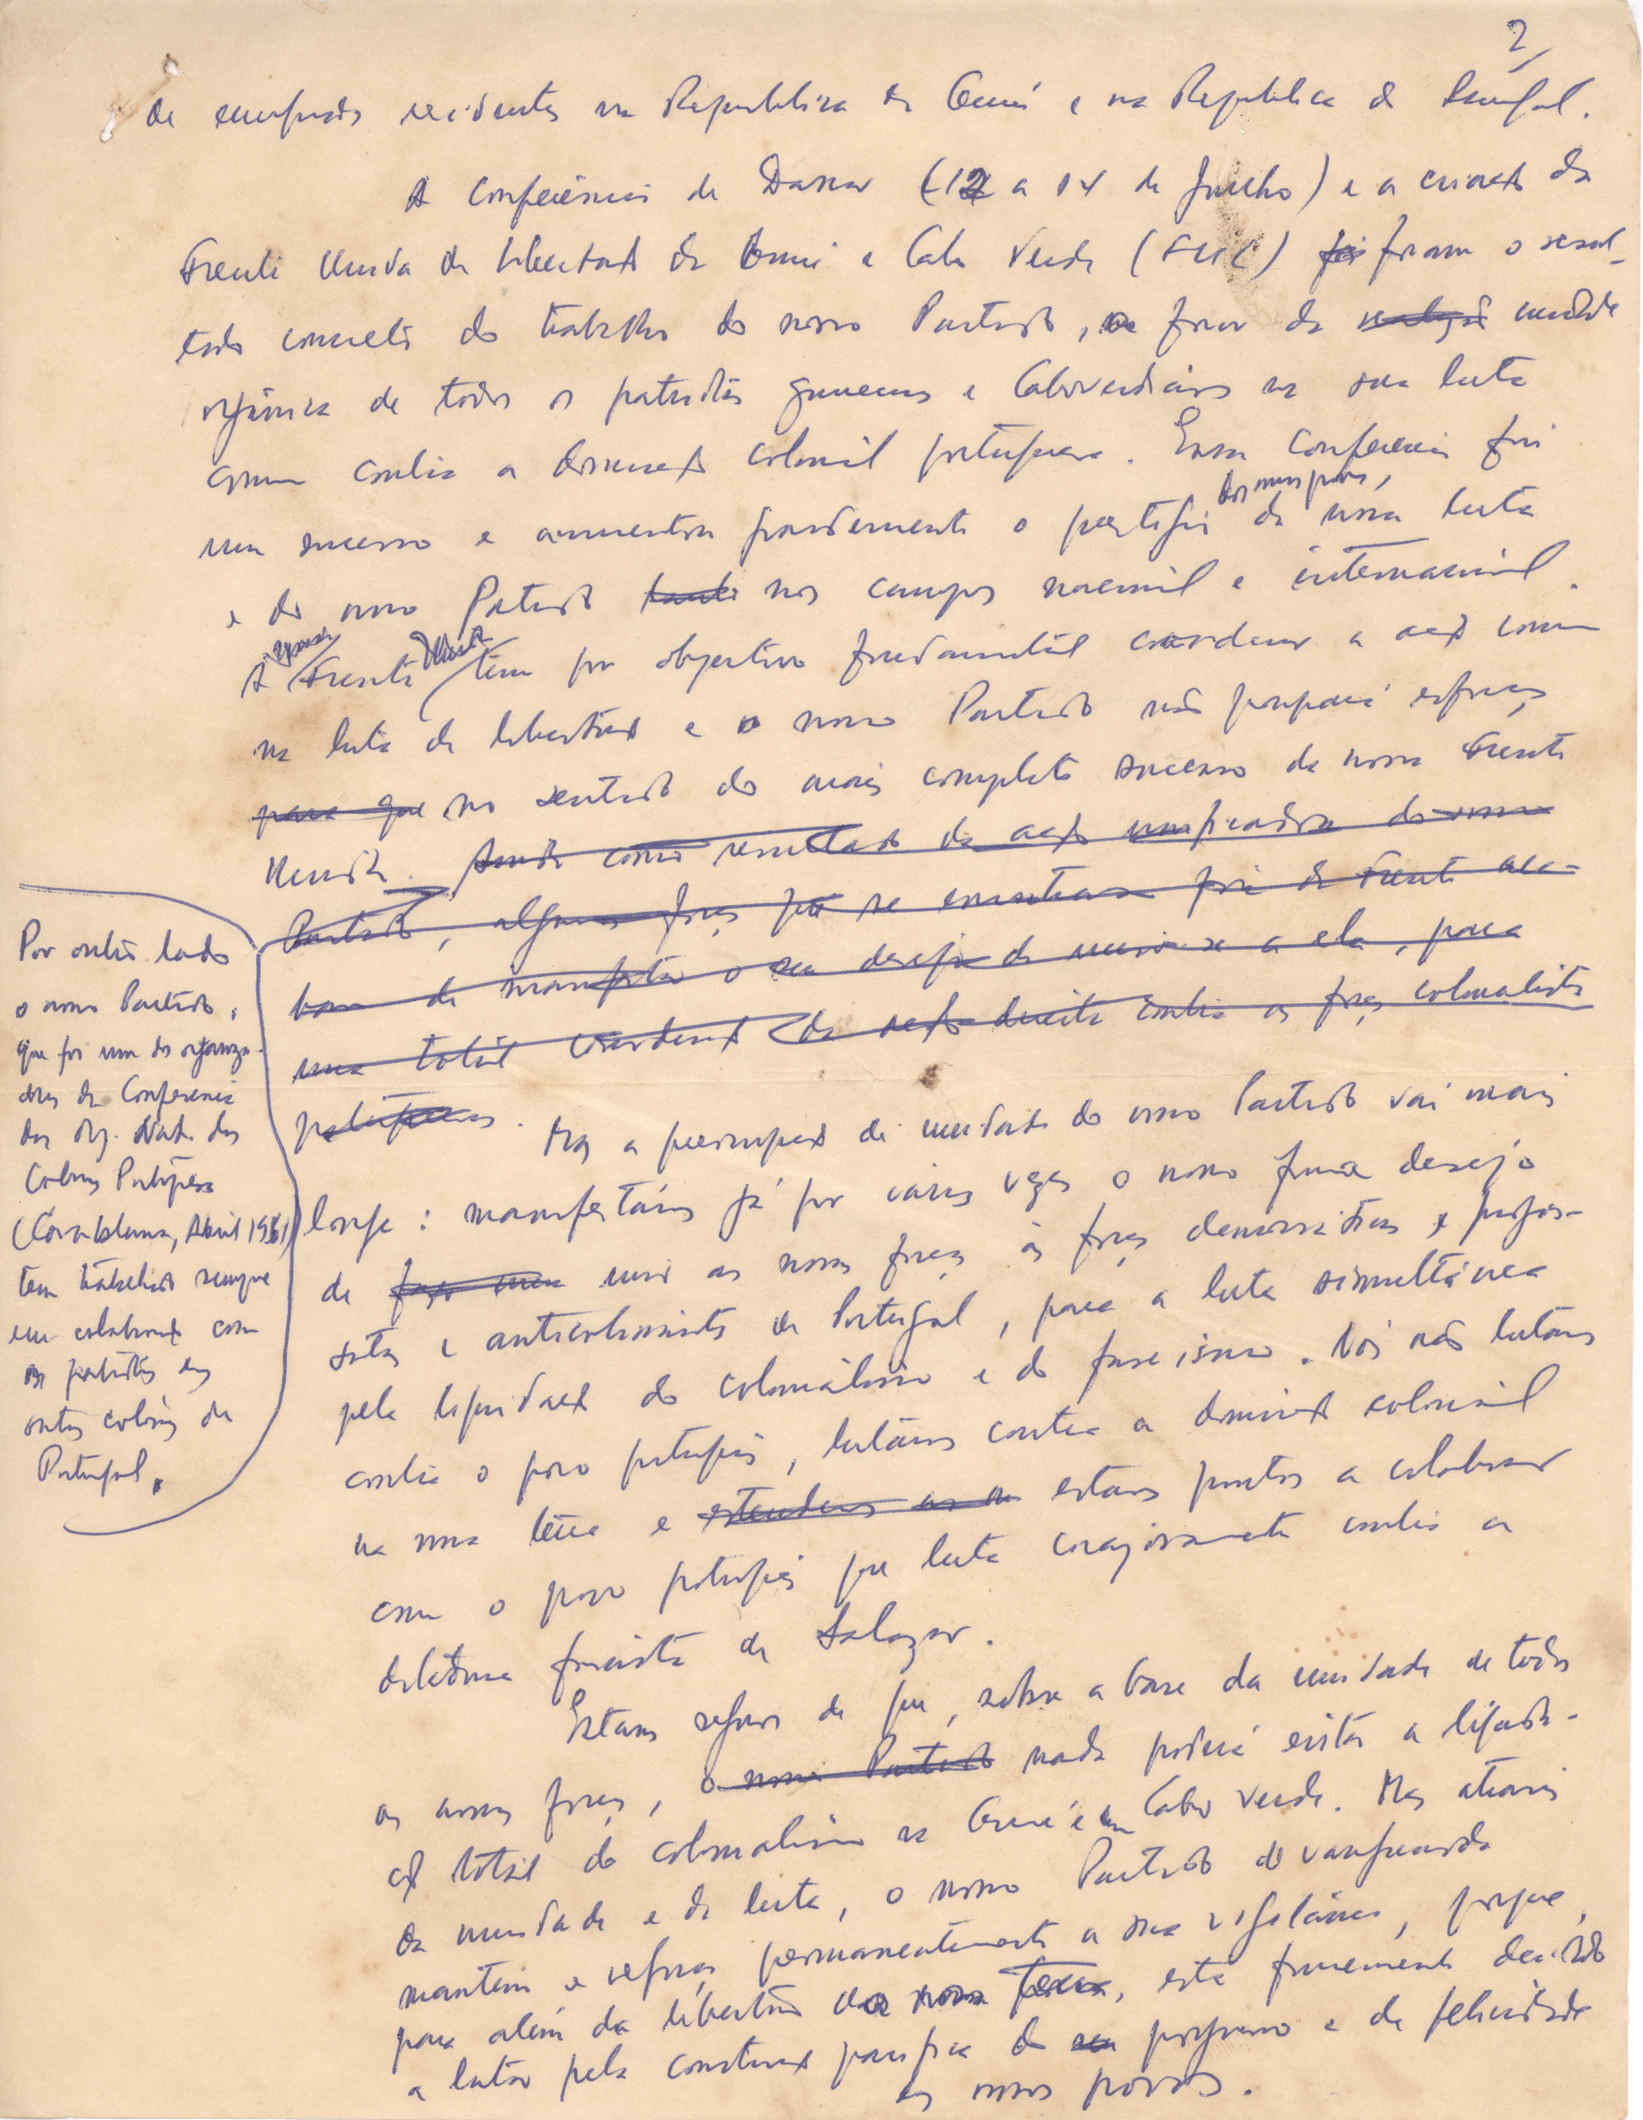 2
de emigrados residentes na Republica da Guiné e na Republica do Senegal.
A Conferência de Dakar (12 a 14 de Julho) e a criação da
Frente Unida de Libertação da Guiné e Cabo Verde (FUL) foi foram o resul-
tado concreto do trabalho do nosso Partido, a favor da unidade
orgânica de todos os patriotas guineenses e Caboverdianos na sua luta
comum contra a dominação colonial portuguesa. Essa Conferência foi
dos nossos povos,
um sucesso e aumentou grandemente o prestígio da nossa luta
e do nosso Partido tanto nos campos nacional e internacional.
A Frente Unida tem por objectivo fundamental coordenar a acção comum
na luta de libertação e o nosso Partido não poupará esforços
para que no sentido do mais completo sucesso da nossa Frente
Unida. Ainda como resultado da acção unificadora do nosso
Partido, algumas forças que se encontravam fora da Frente aca-
bam de manifestar o seu desejo de unir-se a ela, para
uma total coordenação da acção directa contra as forças colonialistas
portuguesas. Mas a preocupação de unidade do nosso Partido vai mais
longe: manifestámos já por várias vezes o nosso firme desejo
de unir as nossas forças às forças democráticas, progres-
sistas e anticolonialistas de Portugal, para a luta simultânea
pela liquidação do colonialismo e do fascismo. Nós não lutamos
contra o povo português, lutamos contra a dominação colonial
na nossa terra e estendemos as estamos prontos a colaborar
com o povo português que luta corajosamente contra a
ditadura fascista de Salazar.
Estamos seguros de que, sobre a base da unidade de todas
as nossas forças, o nosso Partido nada poderá evitar a liquida-
ção total do colonialismo na Guiné e em Cabo Verde. Mas através
da unidade e da luta, o nosso Partido de vanguarda
mantém e reforça permanentemente a sua vigilância, porque,
para além da libertação da nossa terra, está firmemente decidido
a lutar pela construção pacífica do seu progresso e da felicidade
dos nossos povos.
Por outro lado
o nosso Partido,
que foi um dos organiza-
dores da Conferencia
das Org. Nac. das
Colónias Portuguesas
(Casablanca, Abril 1961)
tem trabalhado sempre
em colaboração com
os patriotas das
outras colónias de
Portugal.